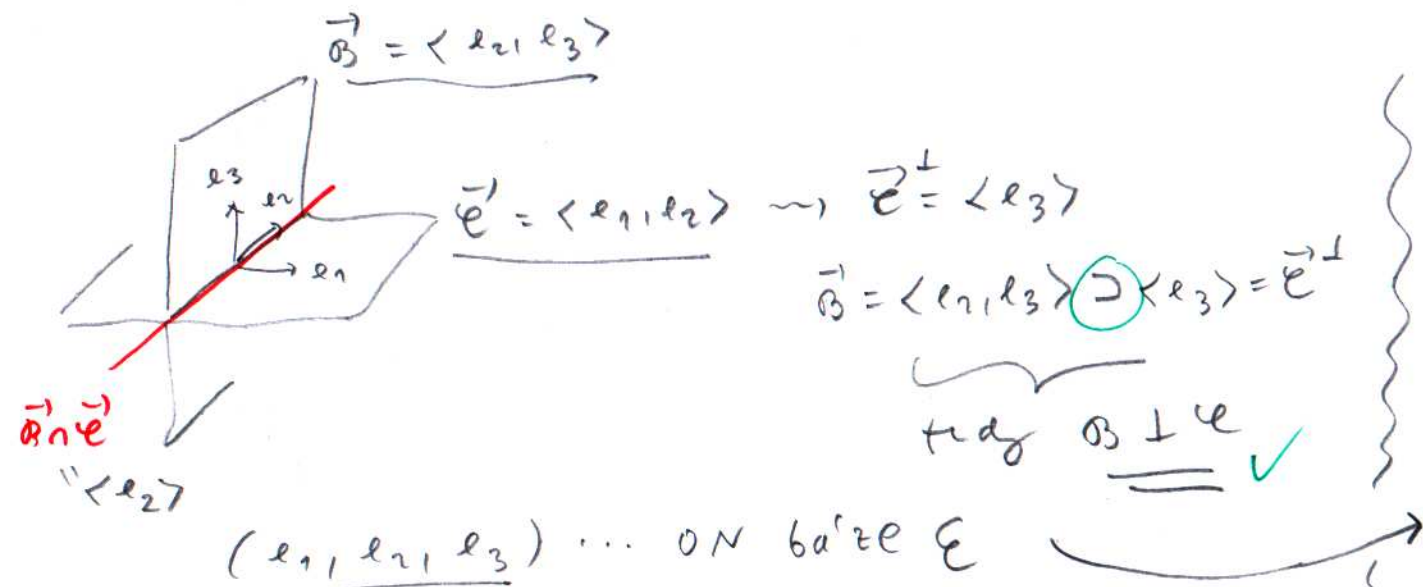 B⃗ = <e2, e3>
e3
e2
e1
C⃗ = <e1, e2> ⇝ C⃗^⊥ = <e3>
B⃗ = <e2, e3> ⊃ <e3> = C⃗^⊥
B⃗ ∩ C⃗
" <e2>
tedy B ⊥ C ✓
(e1, e2, e3) ... ON báze E